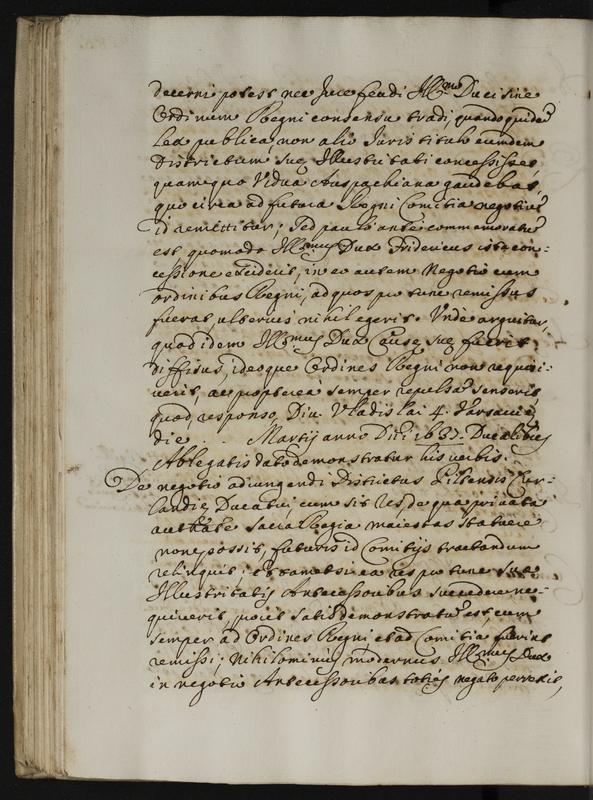 decerni potest nec Jure feudi Ill.mo Duci sine
Ordinum Regni consensu tradi, quandoquidẽ
Lex publica, non alio Juris titulo eumdem
Districtum suę Illustritati concessisset
quam quo Vidua Anspachiana gaudebat,
quo circa ad futura Regni Comitia negotiũ
id remittitur; Sed paulo ante commemoratũ
est quomodo Ill.mus Dux Fridericus ista con:
cessione exciderit, in eo autem Negotio cum
ordinibus Regni, ad quos pro tunc remissus
fuerat, ulterius nihil egerit. Unde arguitur,
quod idem Ill.mus Dux Causę suę fuerit
diffisus, ideoque Ordines Regni non requisi:
verit, ac propterea semper repulsã senserit
quod responso Diui Vladislai 4. Varsauię
die Martij anno Dñi 1637. Ducalibus
Ablegatis dato demonstratur his verbis.
De negotio adiungendi Districtus Piltensis Cur:
landię Ducatui, cum sit res, de qua privata
autthãte Sacra Regia maiestas statuere
non possit, futuris id Comitijs tractandum
relinquit; et tametsi ea res pro tunc suę
Illustritatis Antecessoribus succedere ne:
quiverit, prout satis demonstratũ est, cum
semper ad Ordines Regni et ad Comitia fuerint
remissi; Nihilominus modernus Ill.mus Dux
in negotio Antecessoribus toties negato perrexit,